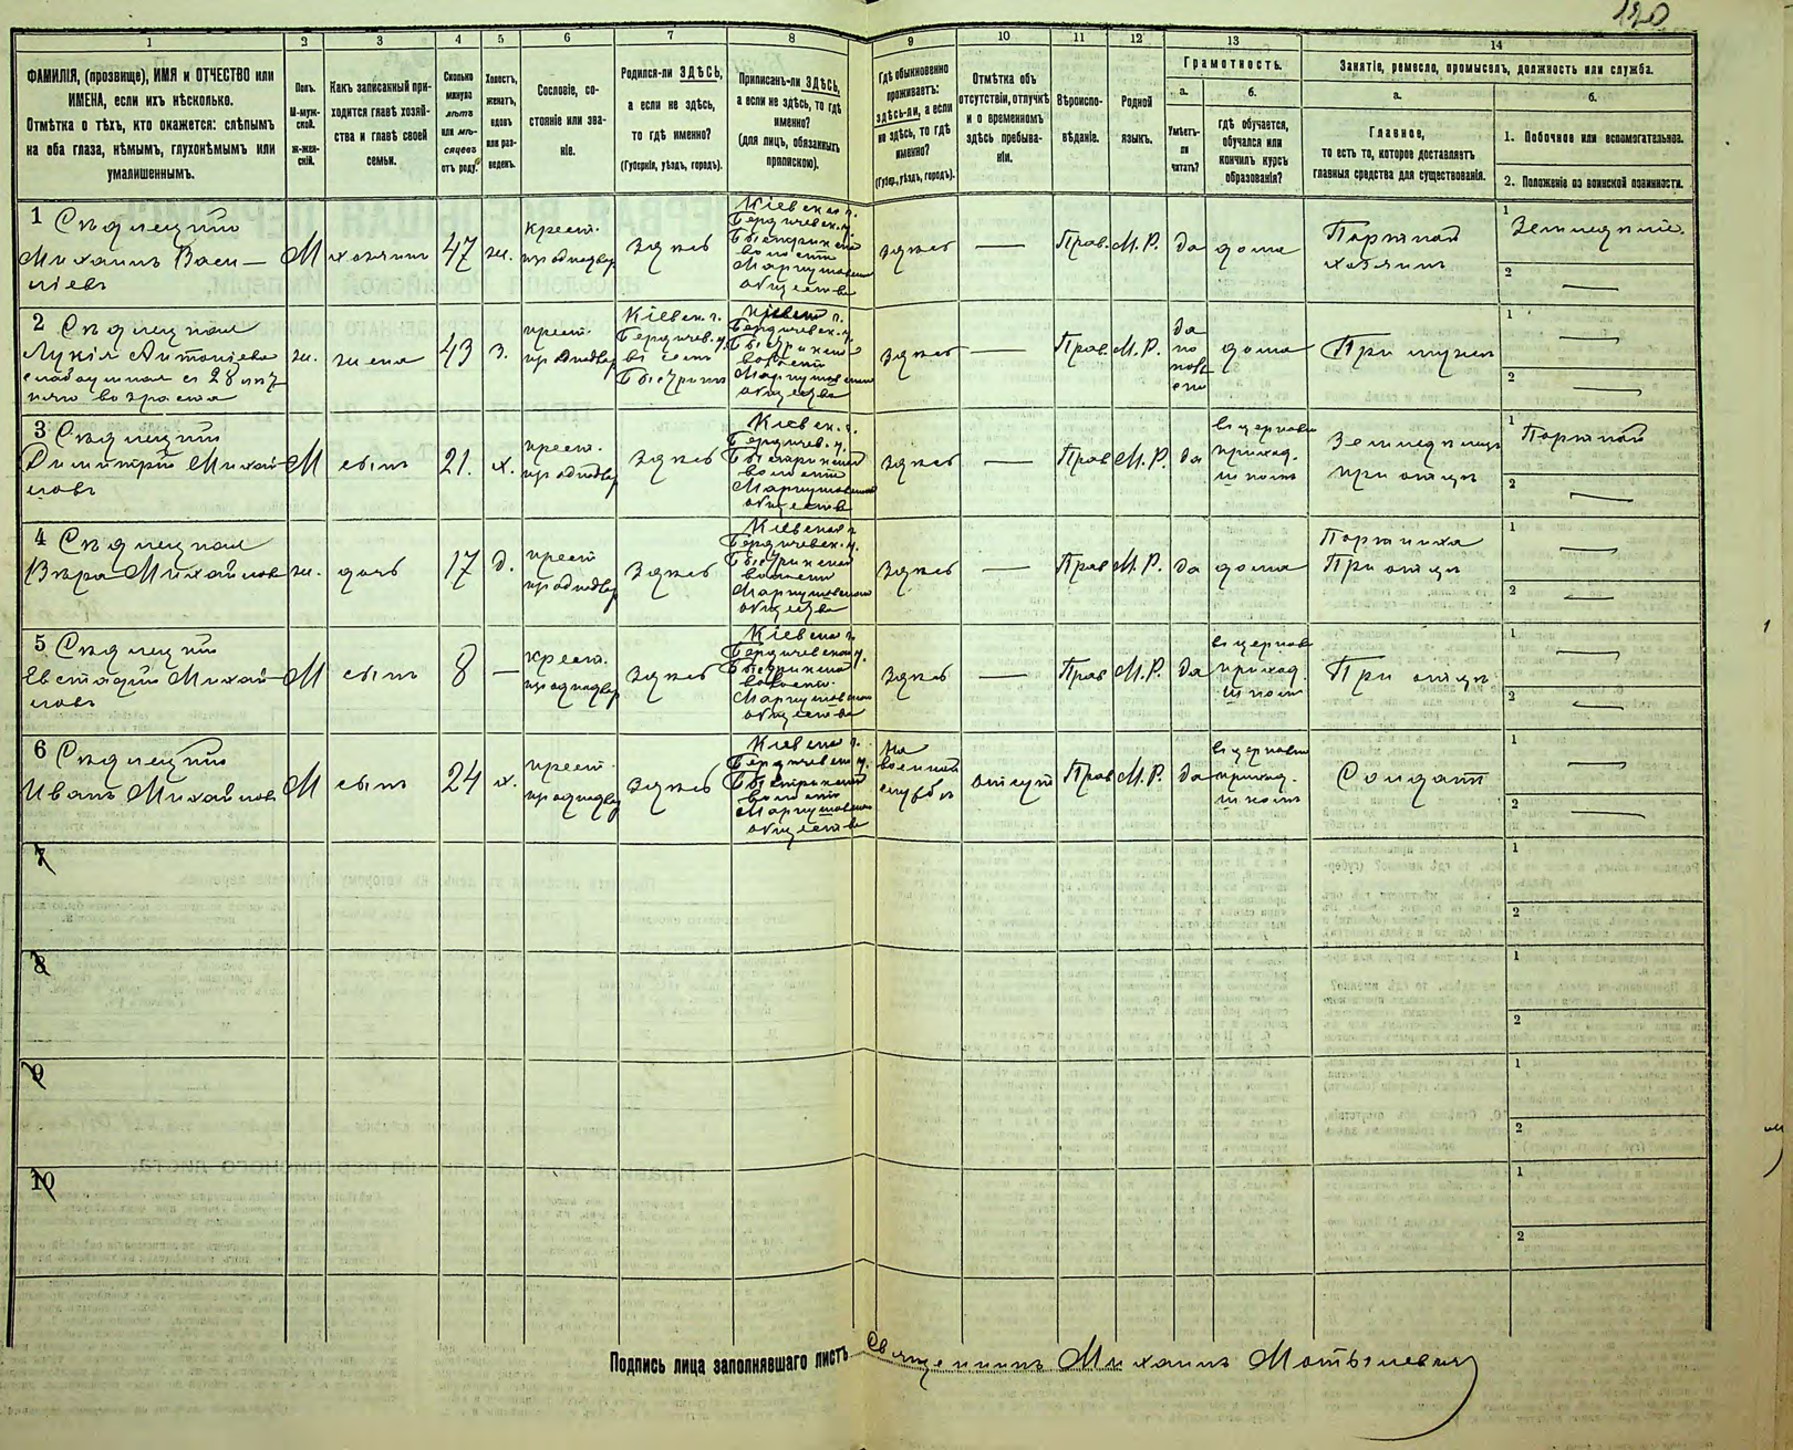 120
1
2
3
4
5
6
7
8
9
10
11
12
13
14
ФАМИЛІЯ, (прозвище), ИМЯ и ОТЧЕСТВО или
ИМЕНА, если ихъ нѣсколько.
Отмѣтка о тѣхъ, кто окажется: слѣпымъ
на оба глаза, нѣмымъ, глухонѣмымъ или
умалишеннымъ.
Полъ.
М-муж-
ской.
ж-жен-
скій.
Какъ записанный при-
ходится главѣ хозяй-
ства и главѣ своей
семьи.
Сколько
минуло
лѣтъ
или мѣ-
сяцевъ
отъ роду?
Холостъ,
женатъ,
вдовъ
или раз-
веденъ.
Сословіе, со-
стояніе или зва-
ніе.
Родился-ли ЗДѢСЬ,
а если не здѣсь,
то гдѣ именно?
(Губернія, уѣздъ, городъ).
Приписанъ-ли ЗДѢСЬ,
а если не здѣсь, то гдѣ
именно?
(для лицъ, обязанныхъ
припискою).
Гдѣ обыкновенно
проживаетъ:
здѣсь-ли, а если
не здѣсь, то гдѣ
именно?
(Губер., уѣздъ, городъ).
Отмѣтка объ
отсутствіи, отлучкѣ
и о временномъ
здѣсь пребыва-
ніи.
Вѣроиспо-
вѣданіе.
Родной
языкъ.
Грамотность.
а.
Умѣетъ-
ли
читать?
б.
гдѣ обучается,
обучался или
кончилъ курсъ
образованія?
Занятіе, ремесло, промыселъ, должность или служба.
а.
Главное,
то есть то, которое доставляетъ
главныя средства для существованія.
б.
1. Побочное или вспомогательное.
2. Положеніе по воинской повинности.
1 Сѣдлецкій
Михаилъ Васи-
ліевъ
М
хозяинъ
47
ж.
крест.
здѣсь
Кіевская г.
Бердичевск. у.
волости
общества
здѣсь
—
Прав.
М. Р.
да
дома
Портной
хозяинъ
1 Земледѣліе.
2 —
2 Сѣдлецкая
Лукія Антоніева
ж.
жена
43
з.
крест.
Кіевск. г.
Бердичев. у.
Кіевск. г.
Бердичевск. у.
волости
общества
здѣсь
—
Прав.
М. Р.
да
дома
При мужѣ
1 —
2 —
3 Сѣдлецкій
Димитрій Михай-
ловъ
М
сынъ
21.
х.
крест.
здѣсь
Кіевск. г.
Бердичев. у.
волости
общества
здѣсь
—
Прав
М. Р.
да
въ церковн
приход.
школѣ
Земледѣлецъ
при отцѣ
1 Портной
2 —
4 Сѣдлецкая
Вѣра Михайлов
ж.
дочь
17
д.
крест
здѣсь
Кіевская г.
Бердичевск. у.
волости
общества
здѣсь
—
Прав
М. Р.
да
дома
Портниха
При отцѣ
1 —
2 —
5 Сѣдлецкій
Евстафій Михай-
ловъ
М
сынъ
8
—
крест.
здѣсь
Кіевская г.
Бердичевской у.
волости
общества
здѣсь
—
Прав
М. Р.
да
въ церков
приход.
школѣ
При отцѣ
1 —
2 —
6 Сѣдлецкій
Иванъ Михайлов
М
сынъ
24
х.
крест.
здѣсь
Кіевская г.
Бердичевск. у.
волости
общества
На
военной
службѣ
отсут
Прав
М. Р.
да
въ церковн
приход.
школѣ
Солдатъ
1 —
2 —
7
1
2
8
1
2
9
1
2
10
1
2
Подпись лица заполнявшаго листъ Священникъ Михаилъ